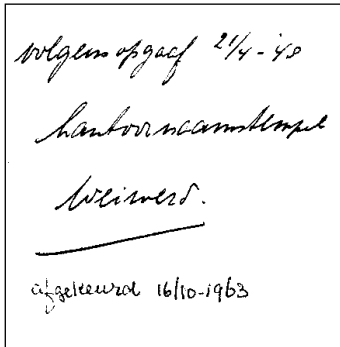 volgens opgaaf 21/4-'48
kantoornaamstempel
Weiwerd.
afgekeurd 16/10-1963